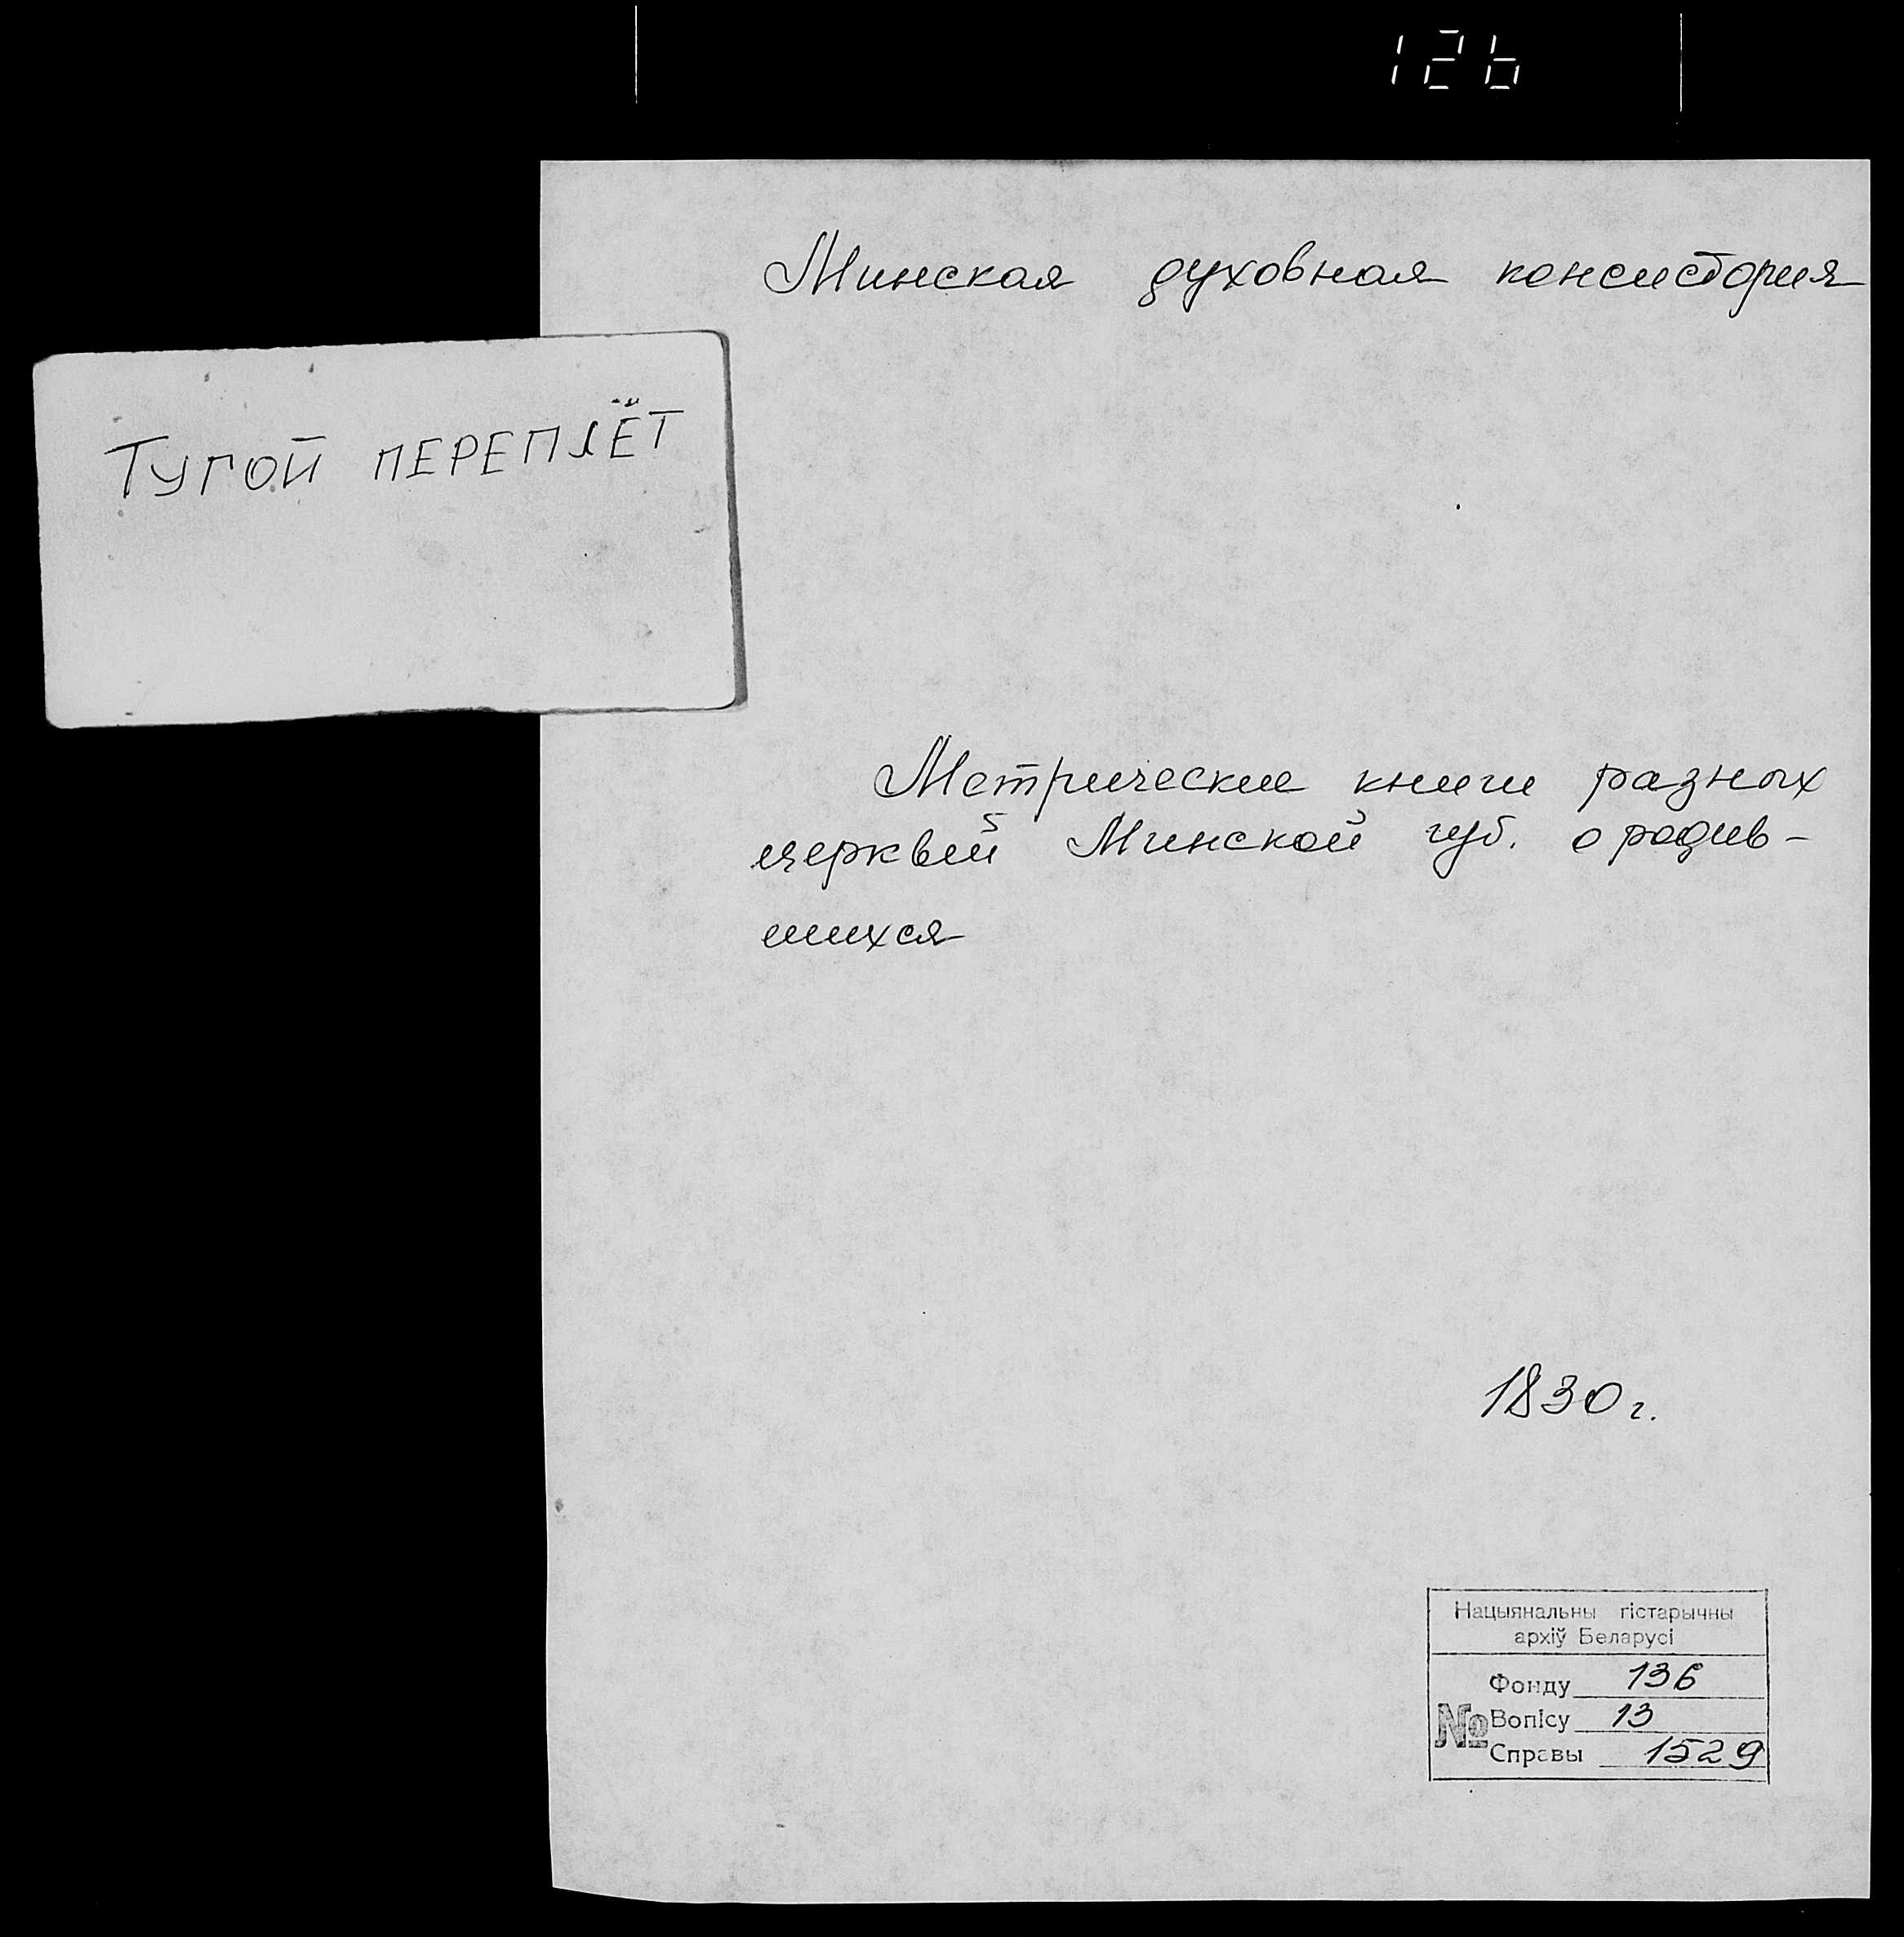 126
Минская духовная консистория
Тугой ПЕРЕПЛЁТ
Метрические книги разных
церквей Минской губ. о родив-
шихся
1830 г.
Нацыянальны гістарычны
архіў Беларусі
Фонду 136
№ Вопісу 13
Справы 1529